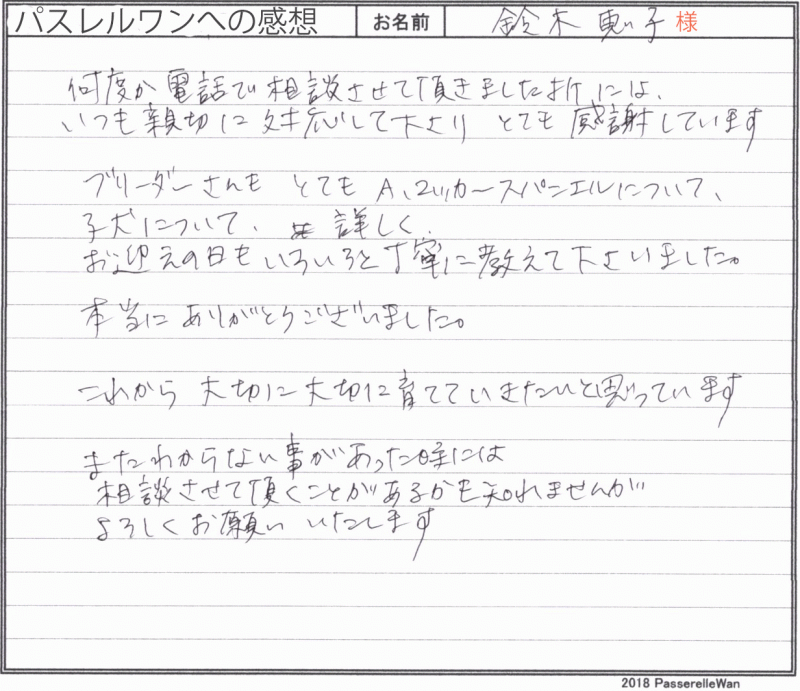 パスレルワンへの感想 お名前 鈴木恵子 様
何度か電話で相談させて頂きました折には、
いつも親切に対応して下さり とても感謝しています
ブリーダーさんも とても A、コッカースパニエルについて、
子犬について、 詳しく、
お迎えの日もいろいろと丁寧に教えて下さいました。
本当にありがとうございました。
これから 大切に大切に育てていきたいと思っています
またわからない事があった時には
相談させて頂くことがあるかも知れませんが
よろしくお願い いたします
2018 PasserelleWan